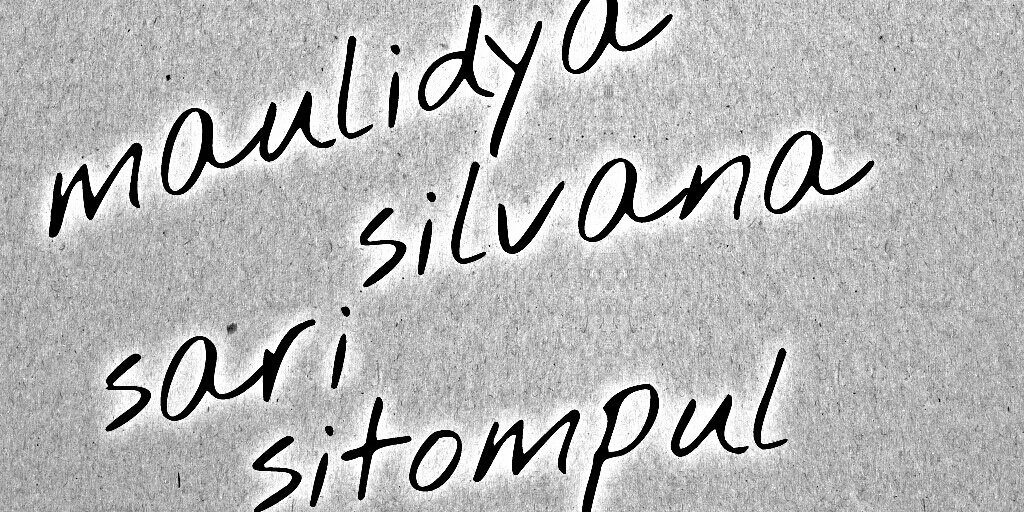 maulidya
silvana
sari
sitompul